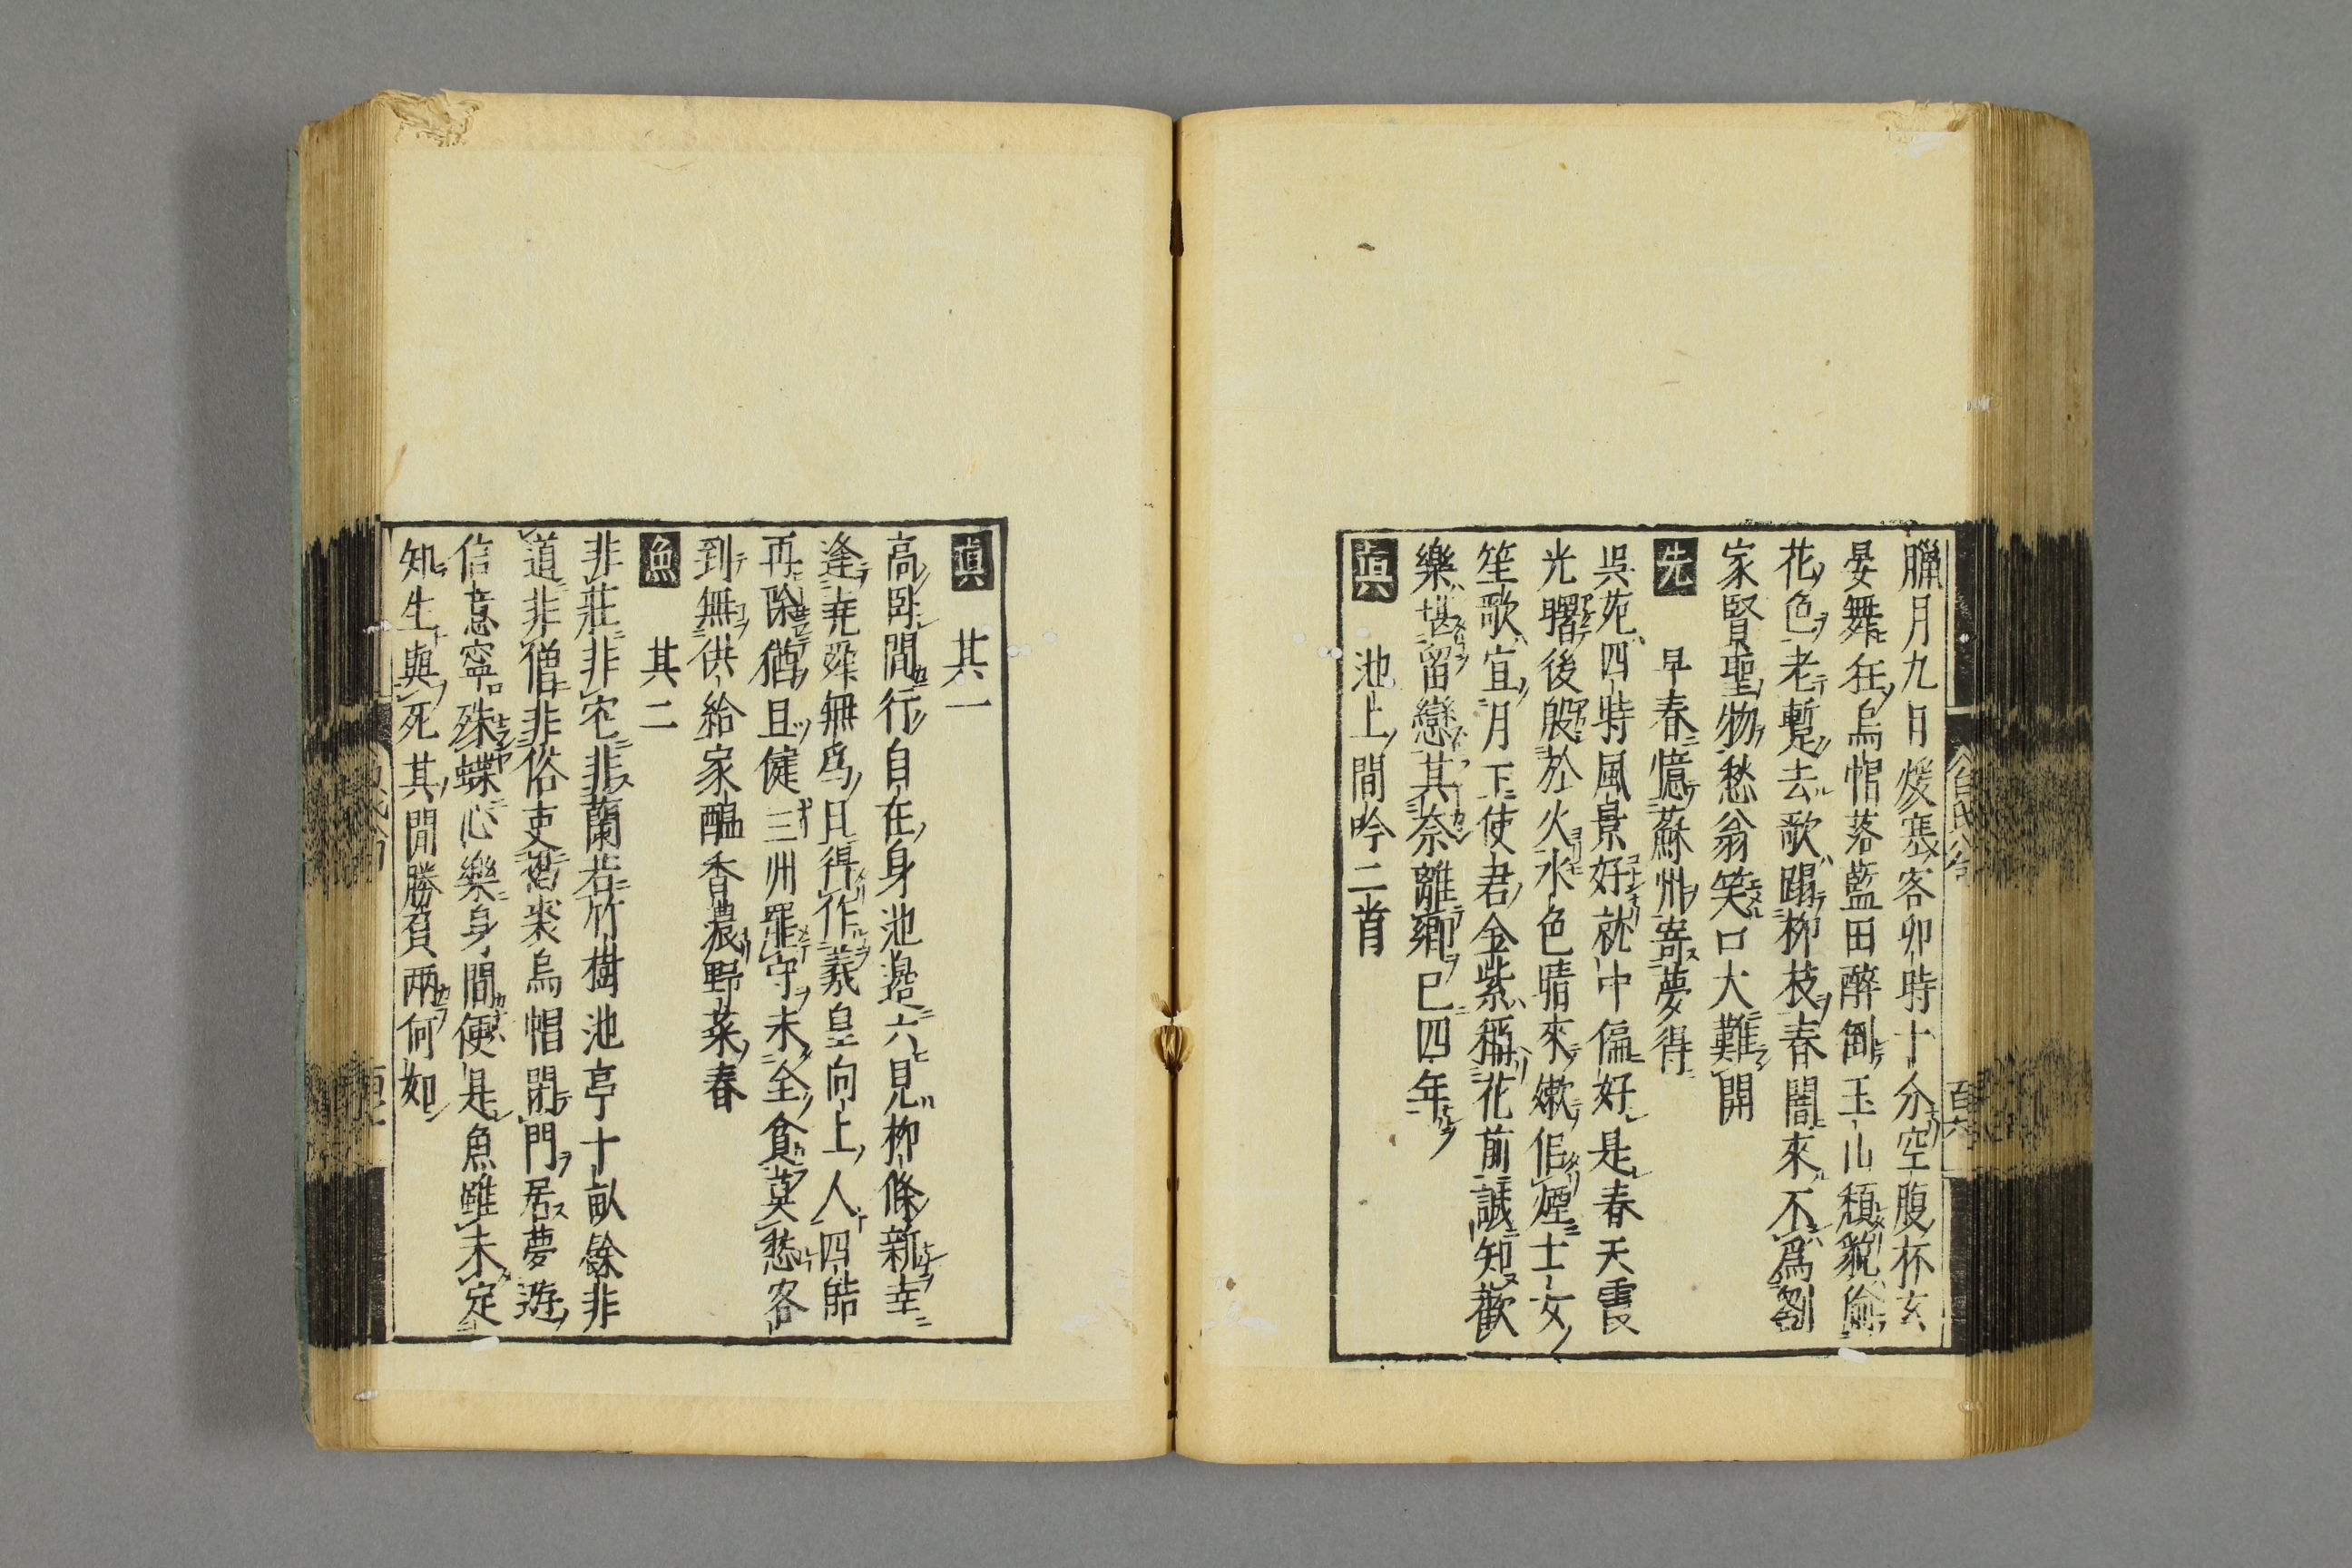 臘月九日煖寒客卯時十分空腹杯玄
晏舞狂烏帽落藍田醉倒玉山頽貌偷
花色老蹔去歌蹋柳枝春闇來不爲劉
家賢聖物愁翁笑口大難開
先 早春憶蘇州寄夢得
吳苑四時風景好就中偏好是春天霞
光曙後殷於火水色晴來嫩似煙士女
笙歌宜月下使君金紫稱花前誠知歡
樂堪留戀其奈離鄉已四年
眞 池上間吟二首
眞 其一
高卧閒行自在身池邊六見柳條新幸
逢堯舜無爲日得作羲皇向上人四皓
再除猶且健三州罷守未全貧莫愁客
到無供給家醞香濃野菜春
魚 其二
非莊非宅非蘭若竹樹池亭十畝餘非
道非僧非俗吏褐裘烏帽閉門居夢遊
信意寧殊蝶心樂身間便是魚雖未定
知生與死其間勝負兩何如